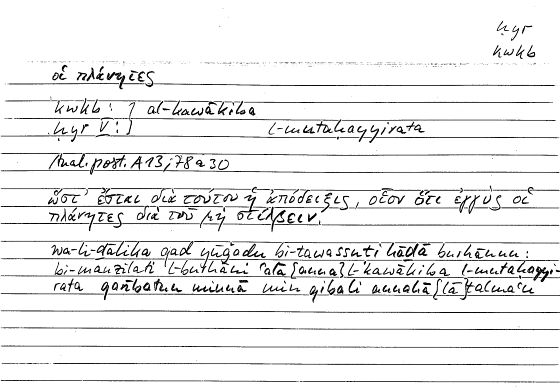 ḥyr
kwkb
οἱ πλάνητες
kwkb: } al-kawākiba
ḥyr V: } l-mutaḥayyirata
Anal. post. A 13, 78 a 30
ὥστ' ἔσται διὰ τούτου ἡ ἀπόδειξις, οἷον ὅτι ἐγγὺς οἱ
πλάνητες διὰ τοῦ μὴ στίλβειν.
wa-li-ḏālika qad yūǧadu bi-tawassuṭi hāḏā burhānun:
bi-manzilati l-burhāni ʿalā {anna} l-kawākiba l-mutaḥayyi-
rata qarībatun minnā min qibali annahā {lā} talmaʿu